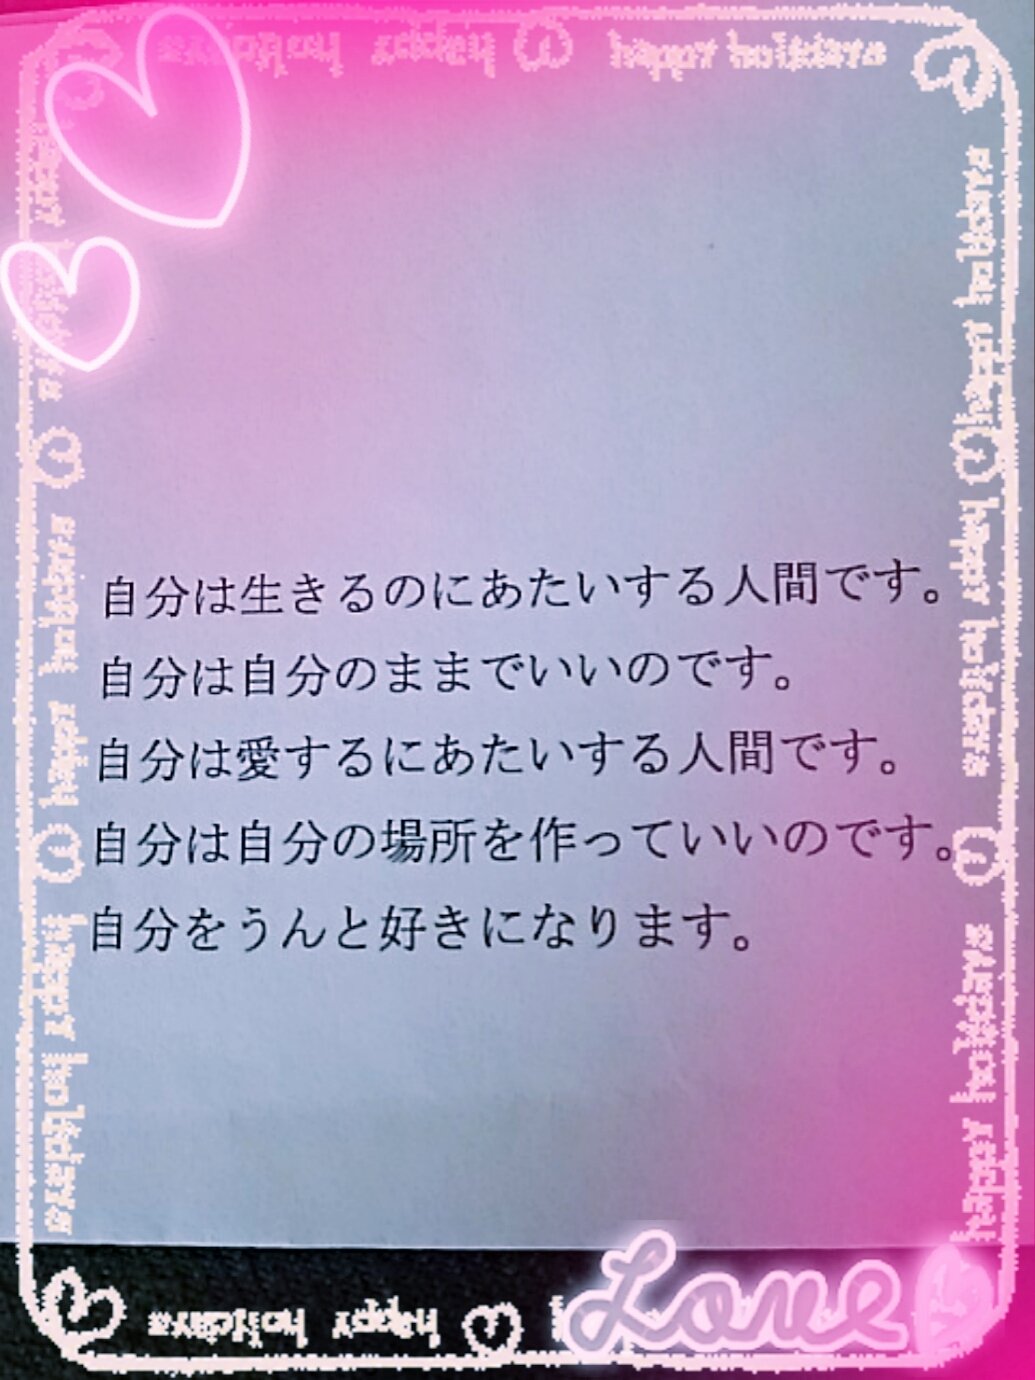 happy holidays
自分は生きるのにあたいする人間です。
自分は自分のままでいいのです。
自分は愛するにあたいする人間です。
自分は自分の場所を作っていいのです。
自分をうんと好きになります。
happy holidays
happy holidays
happy holidays
Love